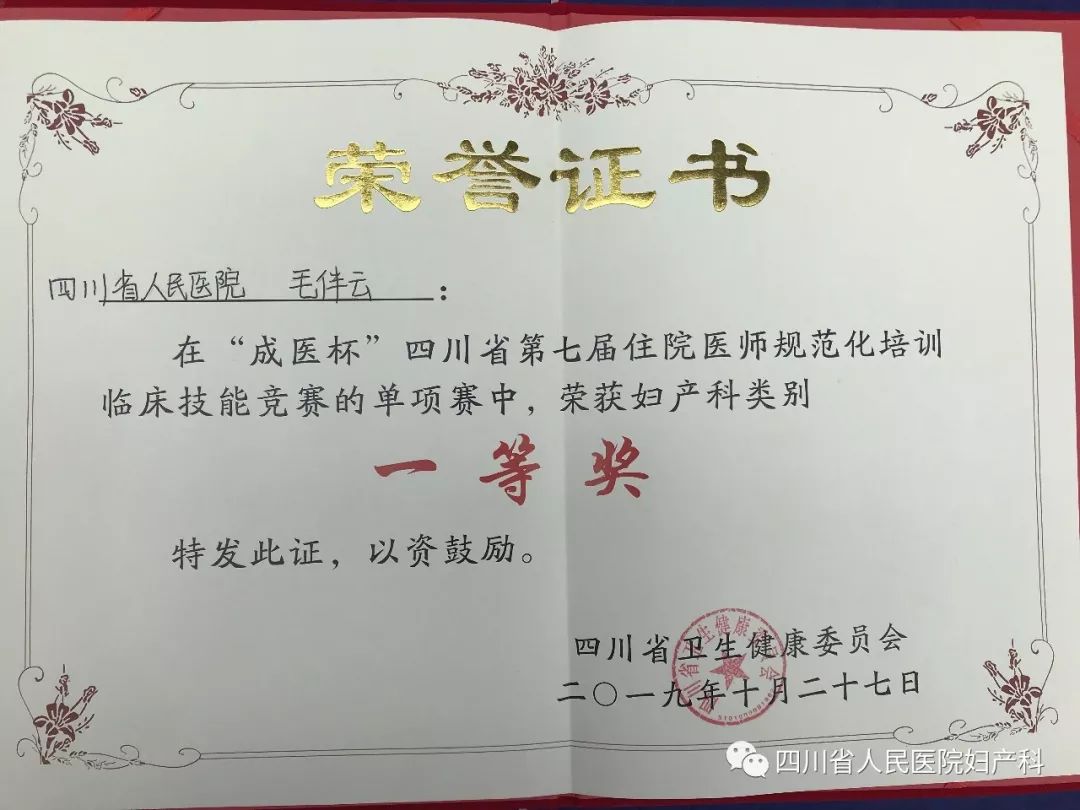 荣誉证书
四川省人民医院 毛伴云：
在“成医杯”四川省第七届住院医师规范化培训
临床技能竞赛的单项赛中，荣获妇产科类别
一等奖
特发此证，以资鼓励。
四川省卫生健康委员会
二〇一九年十月二十七日
四川省卫生健康委员会
四川省人民医院妇产科